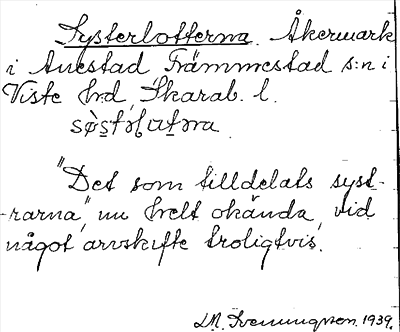 Systerlotterna. Åkermark
i Anestad Främmestad s:n i
Viste hrd, Skarab. l.
"Det som tilldelats syst-
rarna", nu helt okända, vid
något arvskifte troligtvis.
1939.